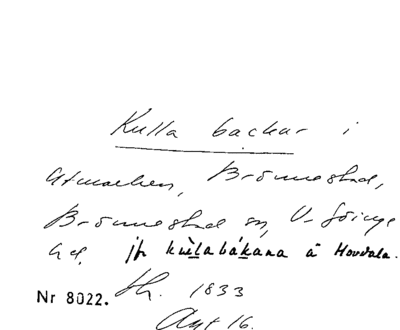 Kulla backar i
utmarken, Brönnestad,
Brönnestad sn, V. Göinge
hd, jfr kùllabákana å Hovdala.
Nr 8022. Sk. 1833
Akt 16.